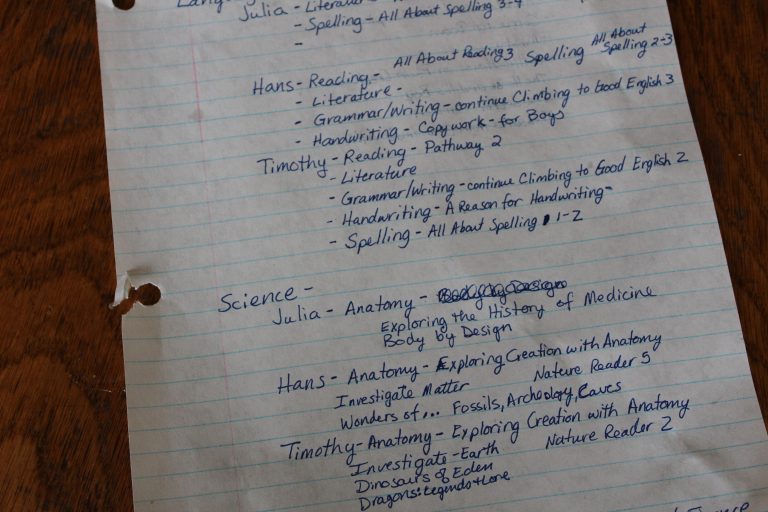 Julia - Literature
- Spelling - All About Spelling 3-4
-
Hans - Reading - All About Reading 3 Spelling All About Spelling 2-3
- Literature -
- Grammar/Writing - continue Climbing to Good English 3
- Handwriting - Copywork - for Boys
Timothy - Reading - Pathway 2
- Literature
- Grammar/Writing - continue Climbing to Good English 2
- Handwriting - A Reason for Handwriting -
- Spelling - All About Spelling 1-2
Science -
Julia - Anatomy -
Exploring the History of Medicine
Body by Design
Hans - Anatomy - Exploring Creation with Anatomy
Investigate Matter Nature Reader 5
Wonders of... Fossils, Archeology, Caves
Timothy - Anatomy - Exploring Creation with Anatomy
Investigate - Earth Nature Reader 2
Dinosaurs of Eden
Dragons: Legends + Lore